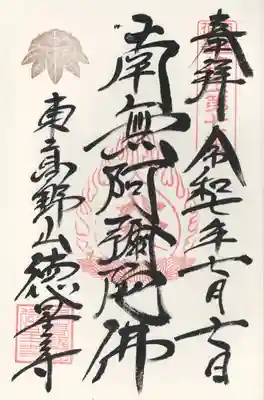 奉拝 令和七年七月六日
南無阿彌陀佛
東高野山徳星寺